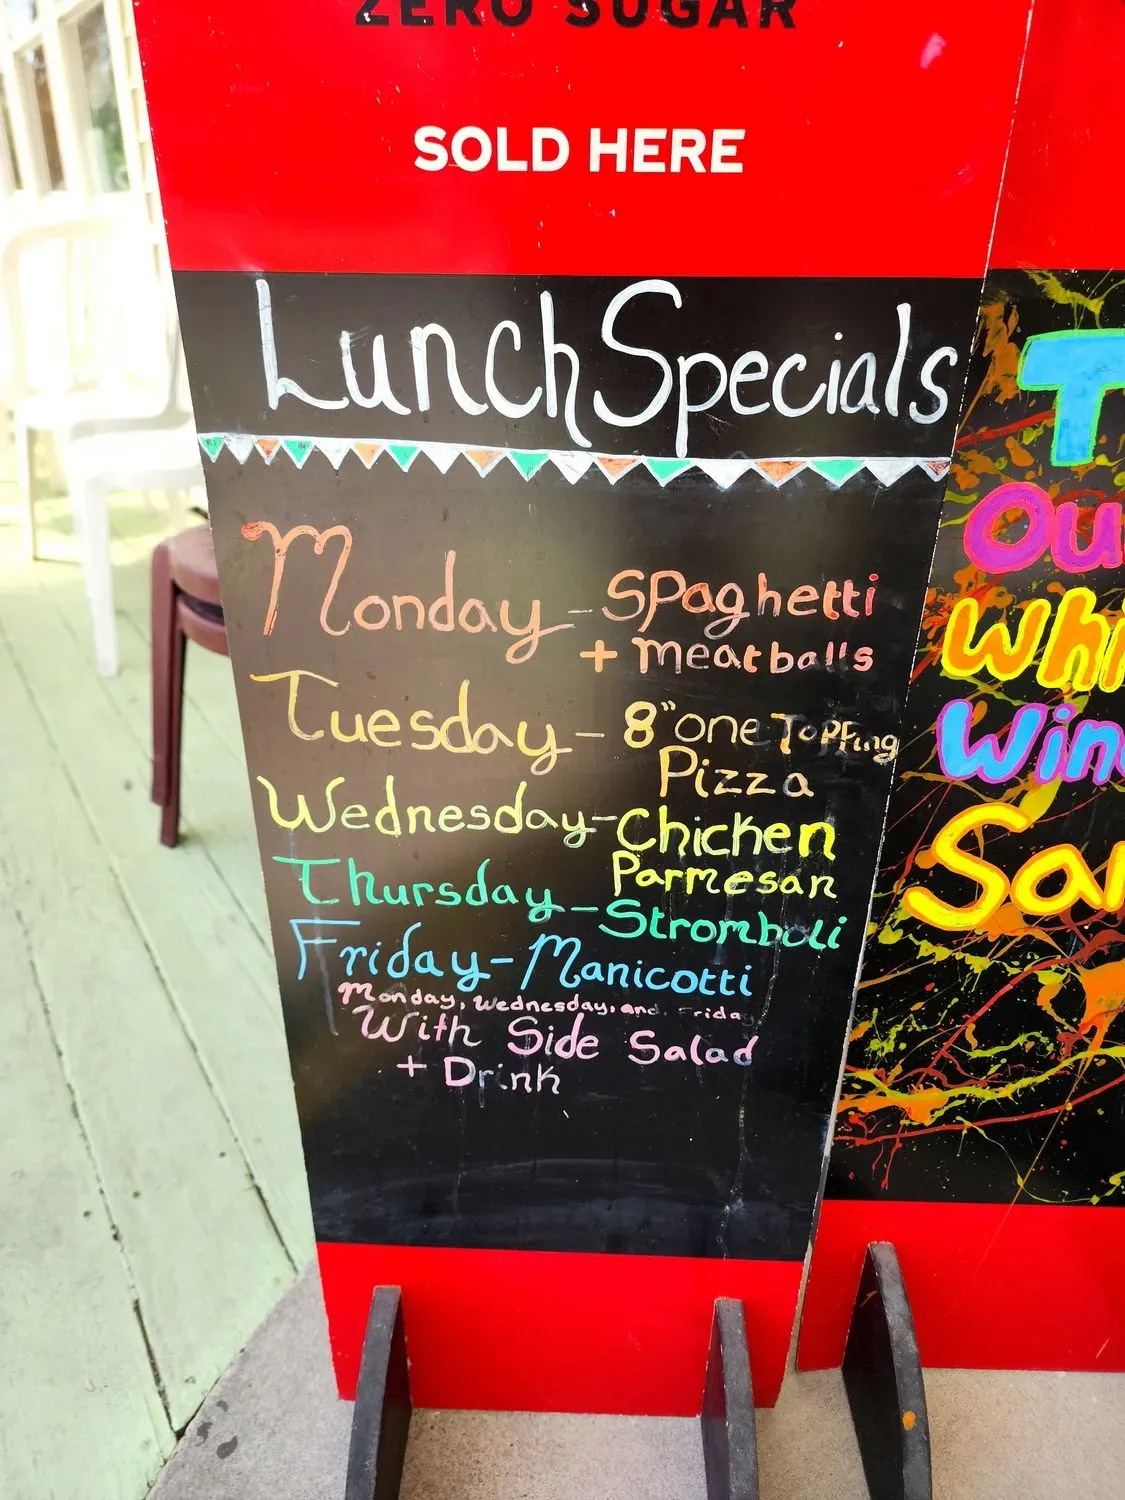 ZERO SUGAR
SOLD HERE
Lunch Specials
Monday - Spaghetti
+ meatballs
Tuesday - 8" one Topping
Pizza
Wednesday - Chicken
Parmesan
Thursday - Stromboli
Friday - Manicotti
Monday, Wednesday, and Friday
With Side Salad
+ Drink